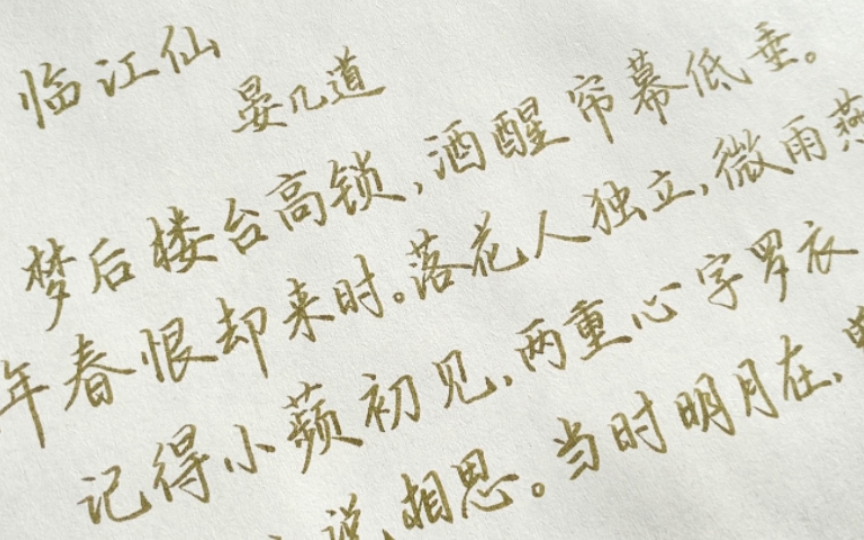 临江仙
晏几道
梦后楼台高锁,酒醒帘幕低垂。
年春恨却来时。落花人独立,微雨燕
记得小蘋初见,两重心字罗衣
说相思。当时明月在,